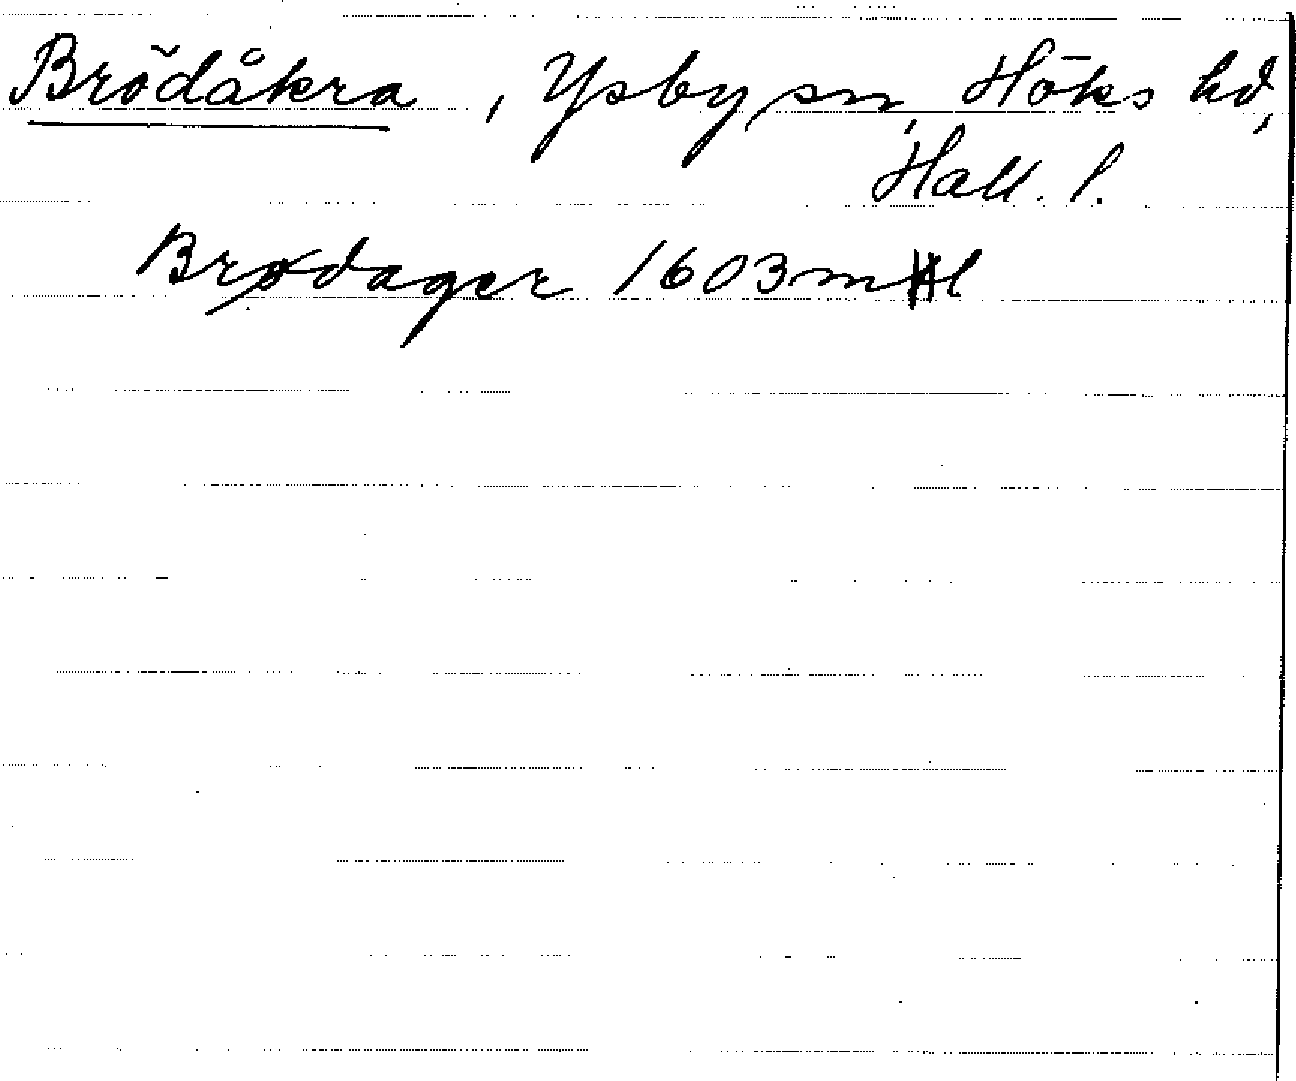 Brödåkra, Ysby sn, Höks hd,
Hall. l.
Brødager 1603 m Hl